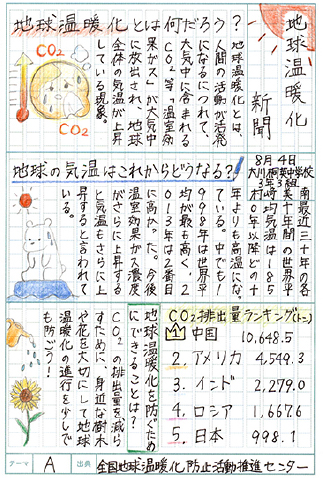 地球温暖化
新聞
地球温暖化とは何だろう?
地球温暖化とは、
人間の活動が活発
になるにつれて、
大気中に含まれる
CO₂等「温室効
果ガス」が大気中
に放出され、地球
全体の気温が上昇
している現象。
CO₂
CO₂
地球の気温はこれからどうなる?!
8月4日
3年3組
最近三十年の各
十年間の世界平
均気温は185
0年以降どの十
年よりも高温になっ
ている。中でも1
998年は世界平
均が最も高く、2
013年は2番目
に高かった。今後
温室効果ガス濃度
がさらに上昇する
と気温もさらに上
昇すると言われて
いる。
CO₂排出量ランキング(トン)
1 中国 10,648.5
2. アメリカ 4,549.3
3. インド 2,279.0
4. ロシア 1,667.6
5. 日本 998.1
地球温暖化を防ぐため
にできることは?
CO₂の排出量を減ら
すために、身近な樹木
や花を大切にして地球
温暖化の進行を少しで
も防ごう!
テーマ A 出典 全国地球温暖化防止活動推進センター